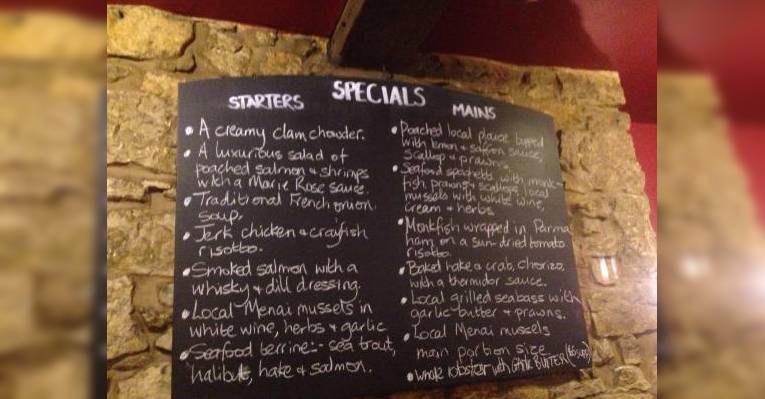 SPECIALS
STARTERS
• A creamy clam chowder.
• A luxurious salad of
poached salmon & shrimps
with a Marie Rose sauce.
• Traditional French onion
soup.
• Jerk chicken & crayfish
risotto.
• Smoked salmon with a
whisky & dill dressing.
• Local Menai mussels in
white wine, herbs & garlic
• Seafood terrine:- sea trout,
halibut, hake & salmon.
MAINS
• Poached local plaice topped
with lemon & saffron sauce,
scallop & prawns.
• Seafood spaghetti with monk-
fish, prawns & scallops, local
mussels with white wine,
cream & herbs.
• Monkfish wrapped in Parma
ham on a sun-dried tomato
risotto.
• Baked hake & crab, chorizo,
with a thermidor sauce.
• Local grilled seabass with
garlic butter & prawns.
• Local Menai mussels
main portion size
• whole lobster with GARLIC BUTTER